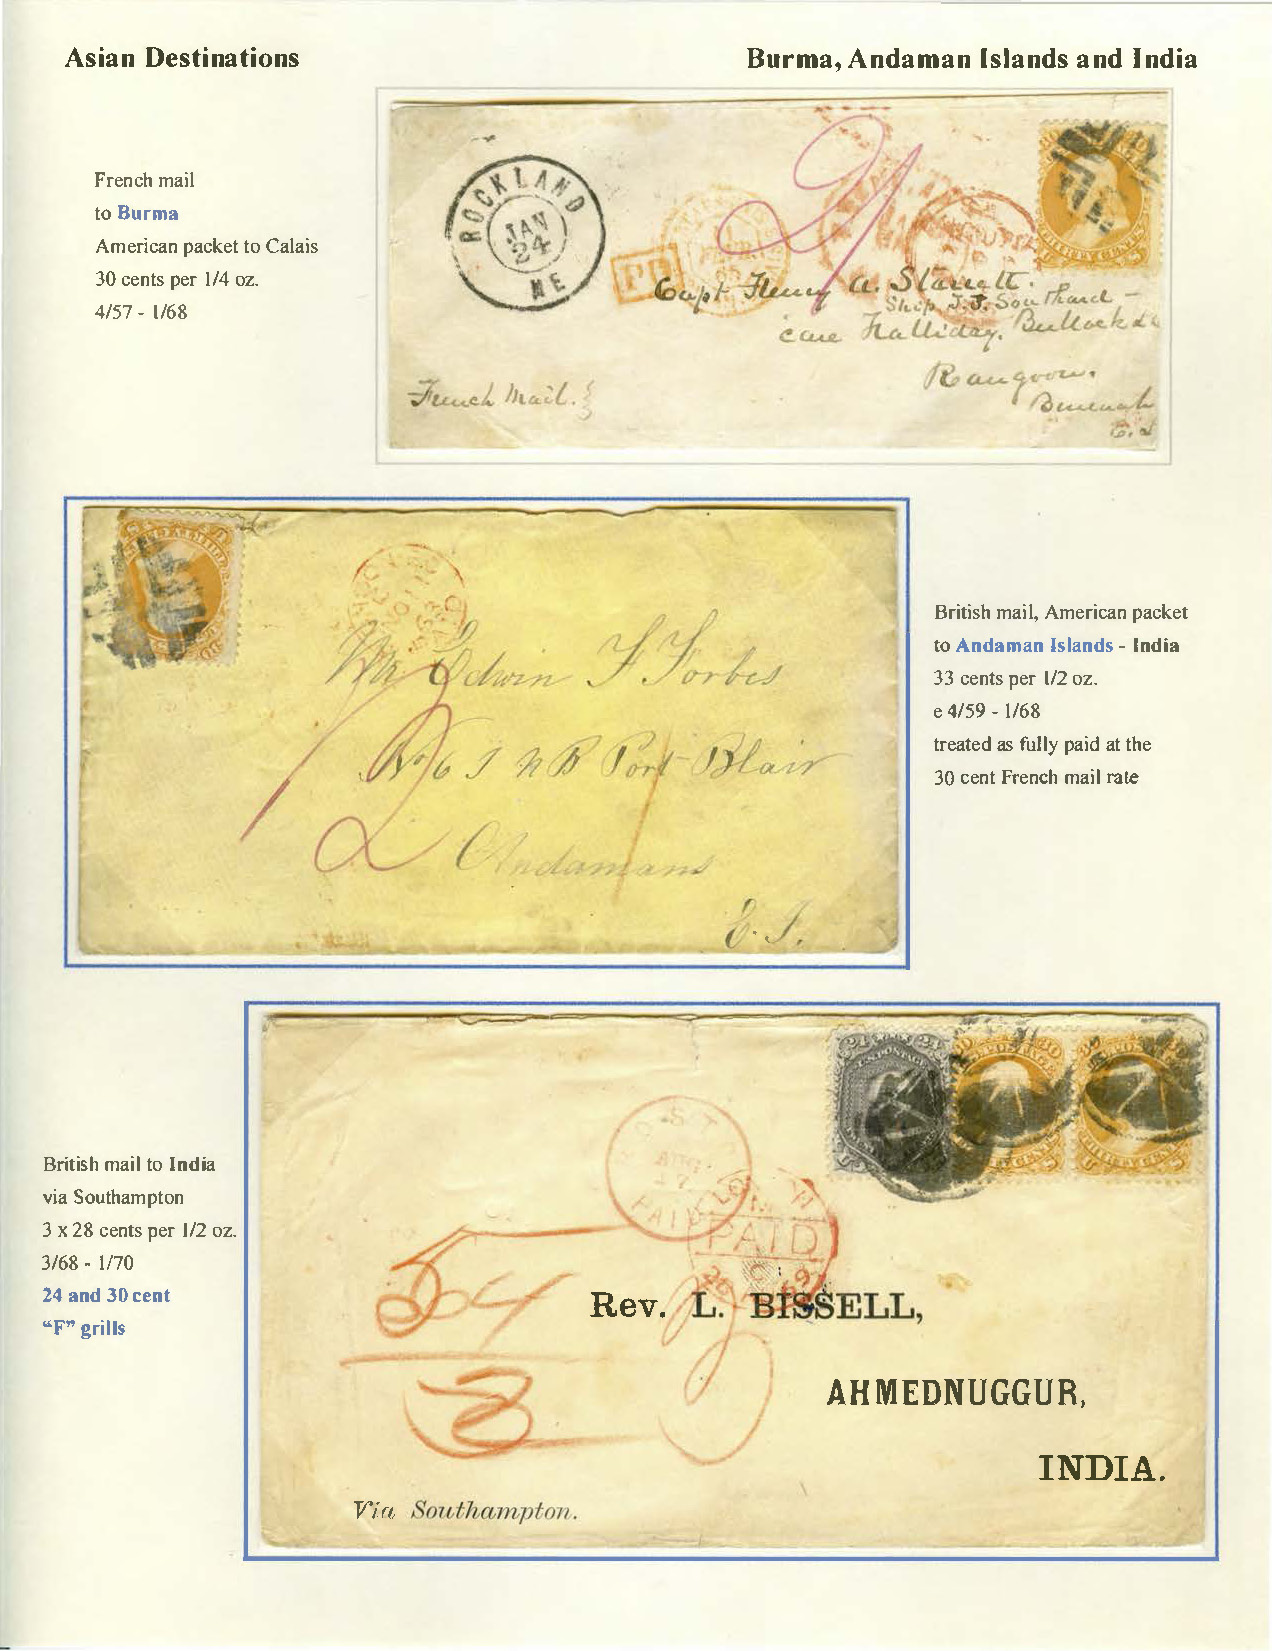 Asian Destinations
Burma, Andaman Islands and India
French mail
to Burma
American packet to Calais
30 cents per 1/4 oz.
4/57 - 1/68
ROCKLAND
JAN
24
ME
PD
Capt Henry A. Starrett.
Ship J.J. Southard -
care Halliday, Bullock &
Rangoon.
French Mail.
British mail, American packet
to Andaman Islands - India
33 cents per 1/2 oz.
e 4/59 - 1/68
treated as fully paid at the
30 cent French mail rate
Mr Edwin F Forbes
Port Blair
Andamans
E. I.
British mail to India
via Southampton
3 x 28 cents per 1/2 oz.
3/68 - 1/70
24 and 30 cent
"F" grills
24 24
U.S. POSTAGE
BOSTON
17
PAID
LONDON
PAID
69
84
3
Rev. L. BISSELL,
AHMEDNUGGUR,
INDIA.
Via Southampton.